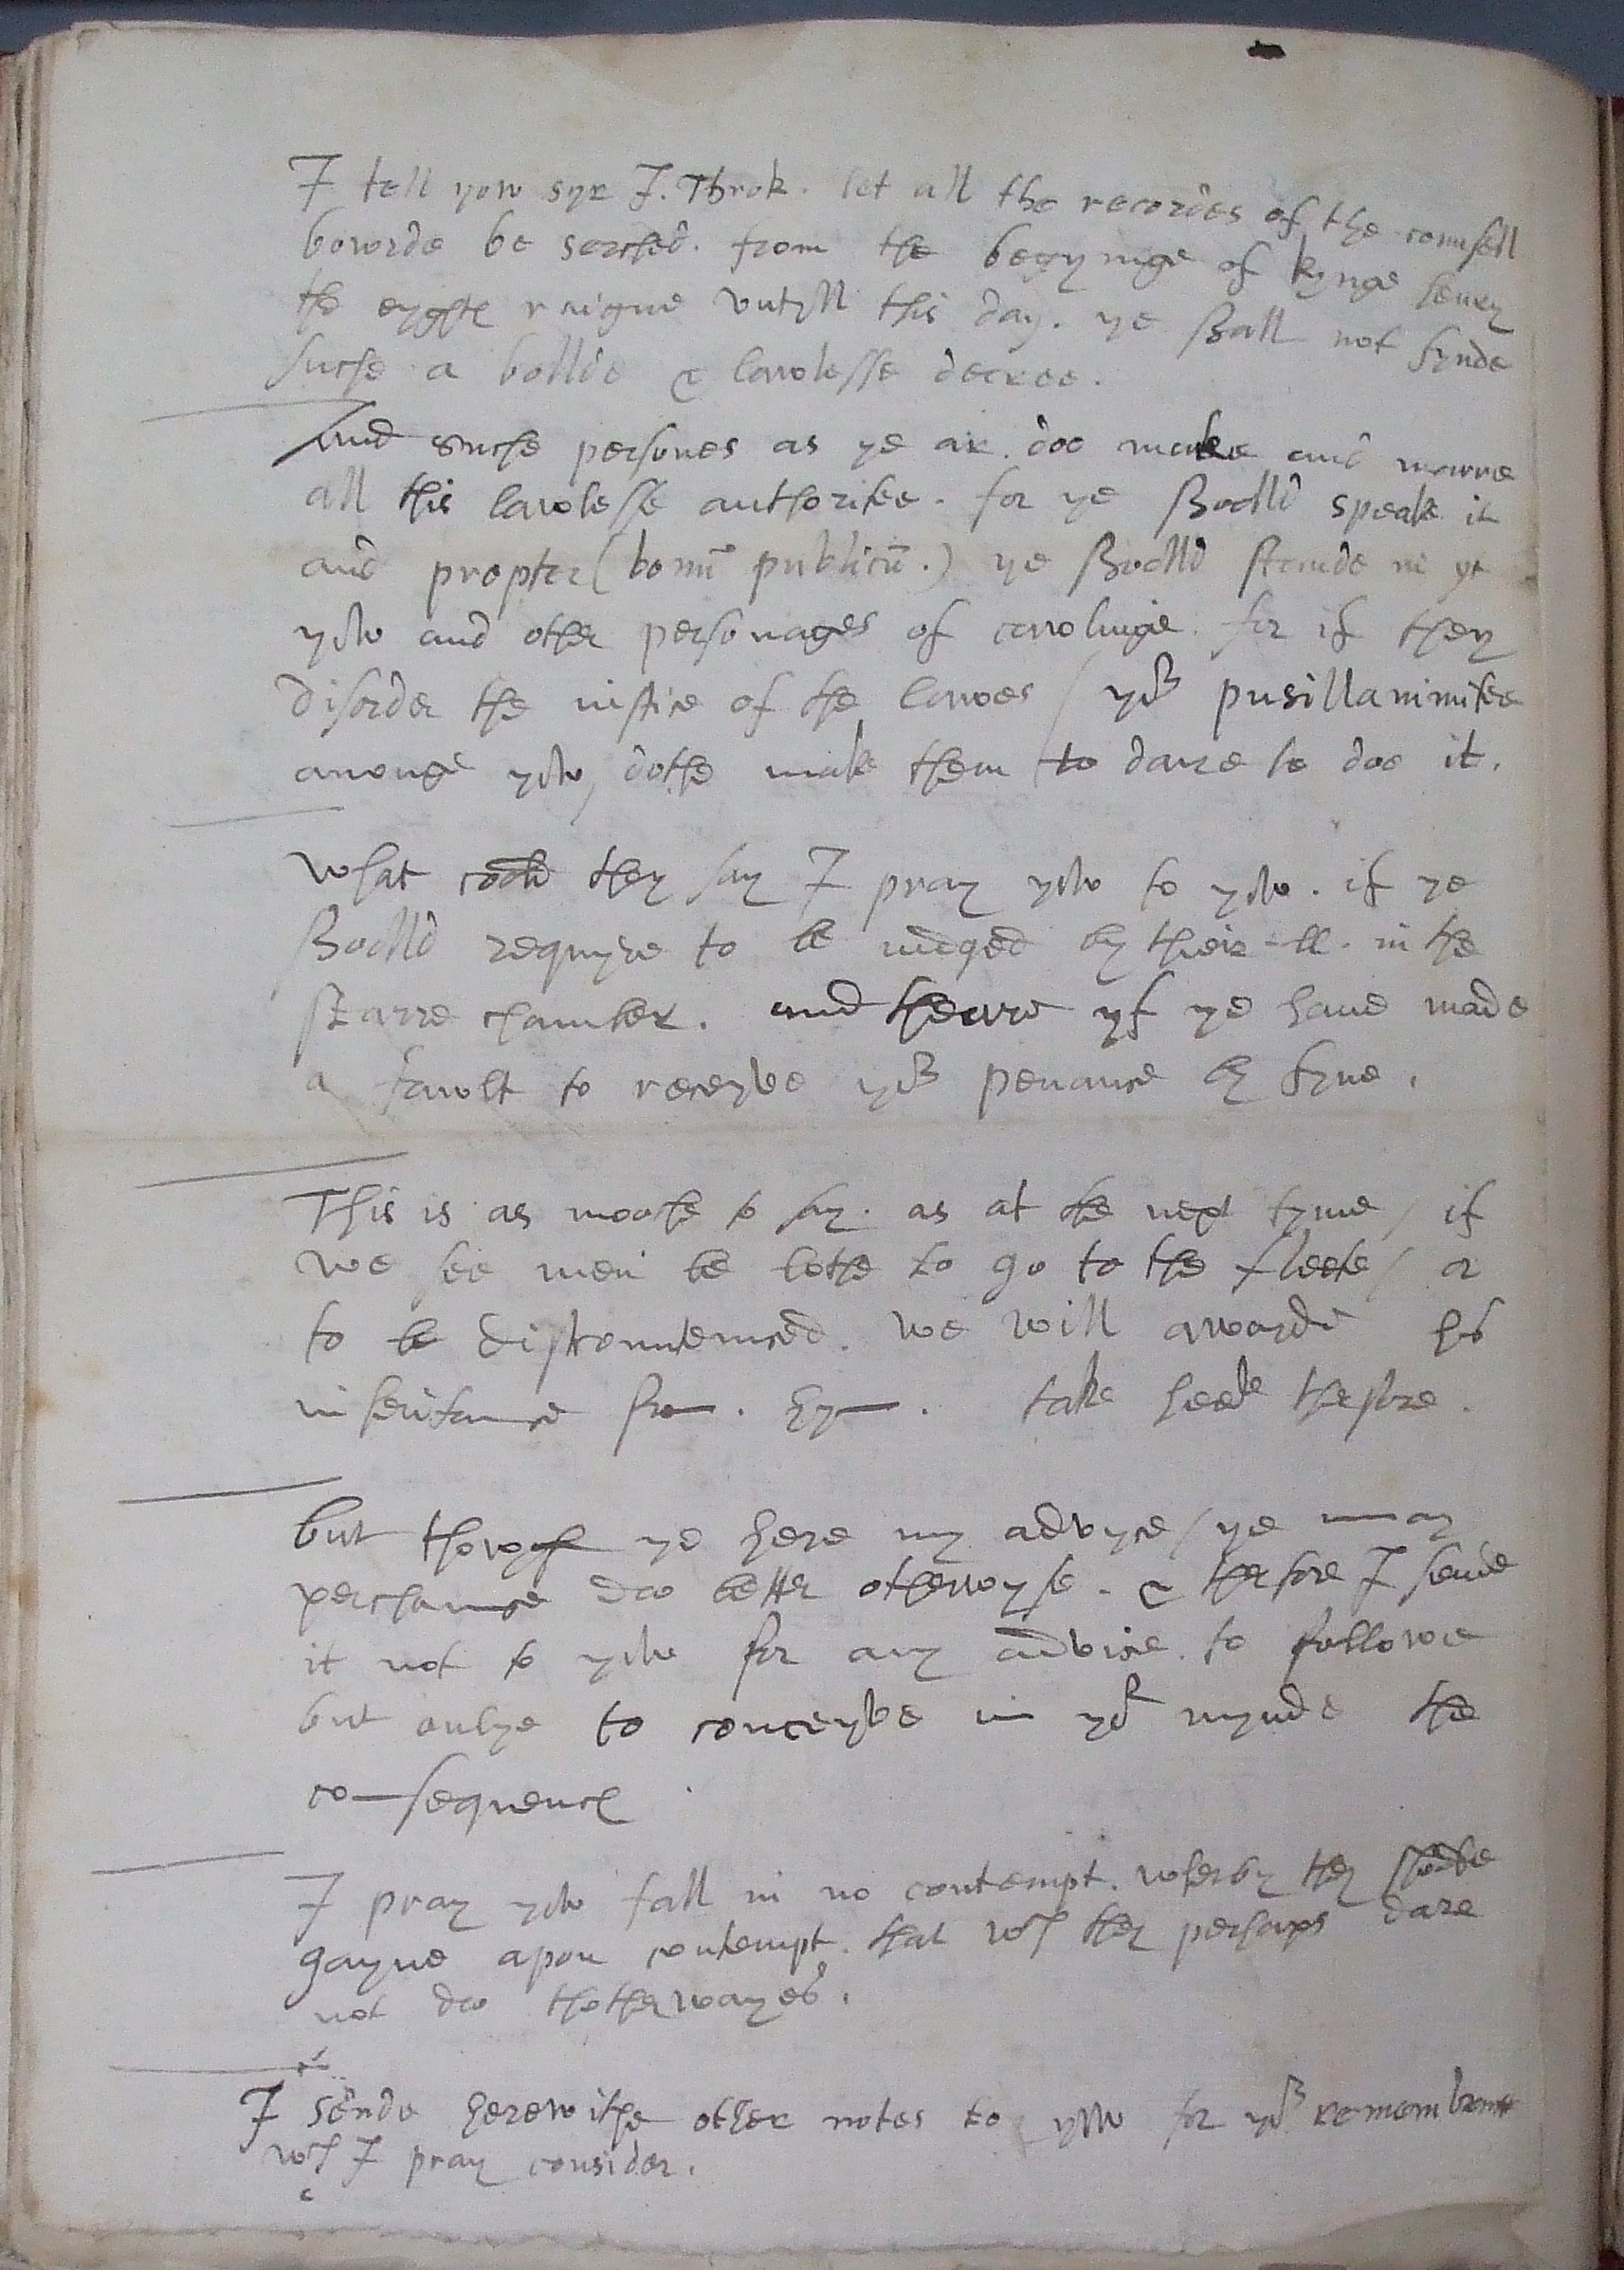 I tell yow syr J. Throk. let all the recordes of the counsell
bowrde be serched. from the begynnge of kynge henry
the eyghte raigne untyll this day. ye shall not fynde
suche a bollde & lawlesse decree.
And suche persones as ye ar. doe make and marre
all this lawlesse authoritee. for ye shoolld speake it
and propter (bonū publicū.) ye shoolld stande in yt
yow and other personages of cawlinge. for if they
disorder the iustice of the lawes / yor pusillanimitee
amonge yow, dothe make them to dare to doe it.
What coold they say I pray yow to yow. if ye
shoolld requyre to be iudged by their -ll. in the
starre chamber. and theare yf ye have made
a fawlt to receyve yor penance by fyne.
This is as moche to say. as at the next tyme / if
we see men be lothe to go to the fleete / or
to be discountenaced. we will awarde his
inheritance fro— . hy— . take heede therfore.
but thowgh ye here my advyce / ye may
perchance doo better otherwyse. & therfore I sende
it not to yow for any advice to followe
but onlye to conceyve in yor mynde the
co—sequence .
I pray yow fall in no contempt. wherby they
gayne apon contempt. that wch they perhaps dare
not doo thotherwayes.
I sende herewithe other notes to yow for yor remembrance
wch I pray consider.